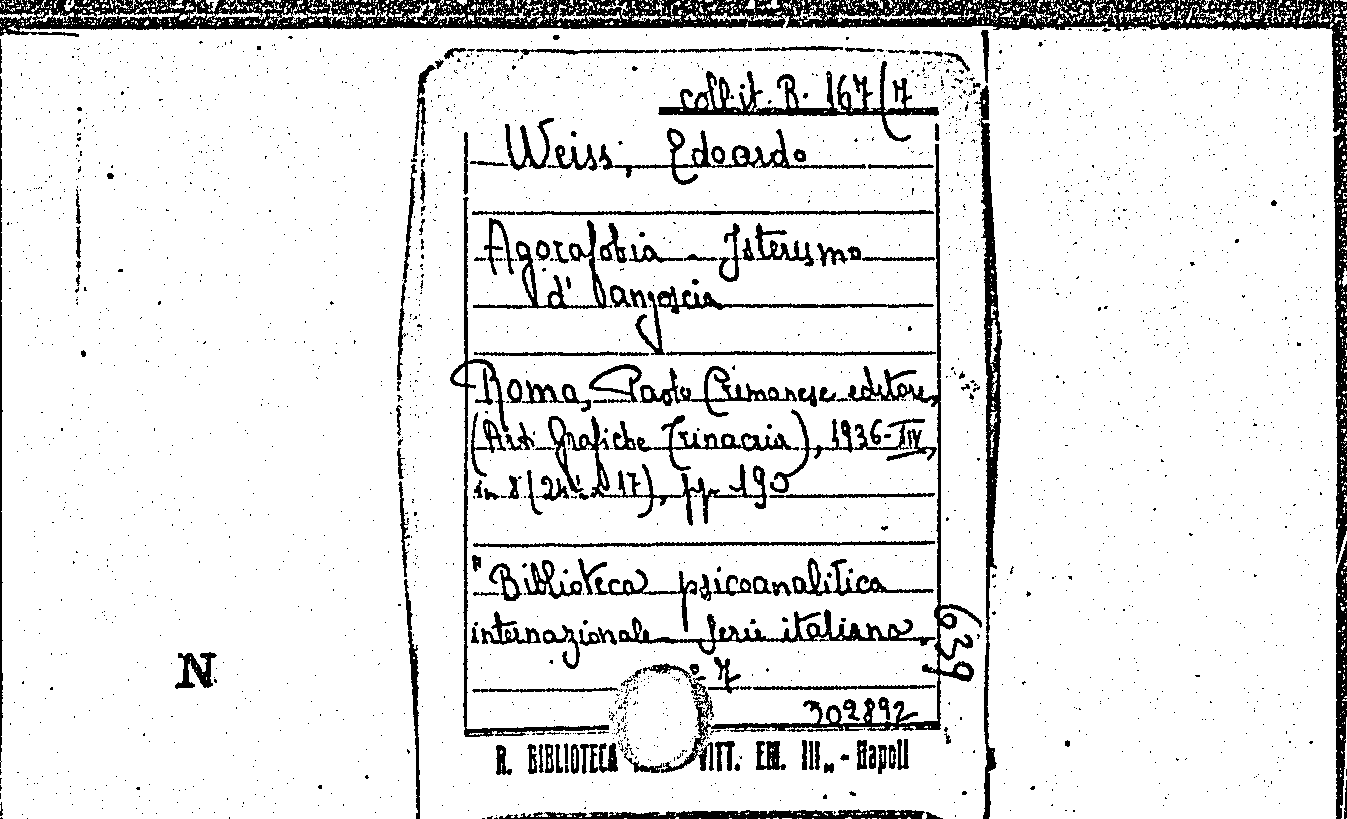 coll. it. B. 167/7
Weiss, Edoardo
Agorafobia - Isterismo
d'angoscia
Roma, Paolo Cremonese editore,
(Arti Grafiche Trinacria), 1936-XIV,
in 8 (24 x 17), pp. 190
"Biblioteca psicoanalitica
internazionale. Serie italiana,
° 7
639
N
302892
R. BIBLIOTECA VITT. EM. III„ - Napoli